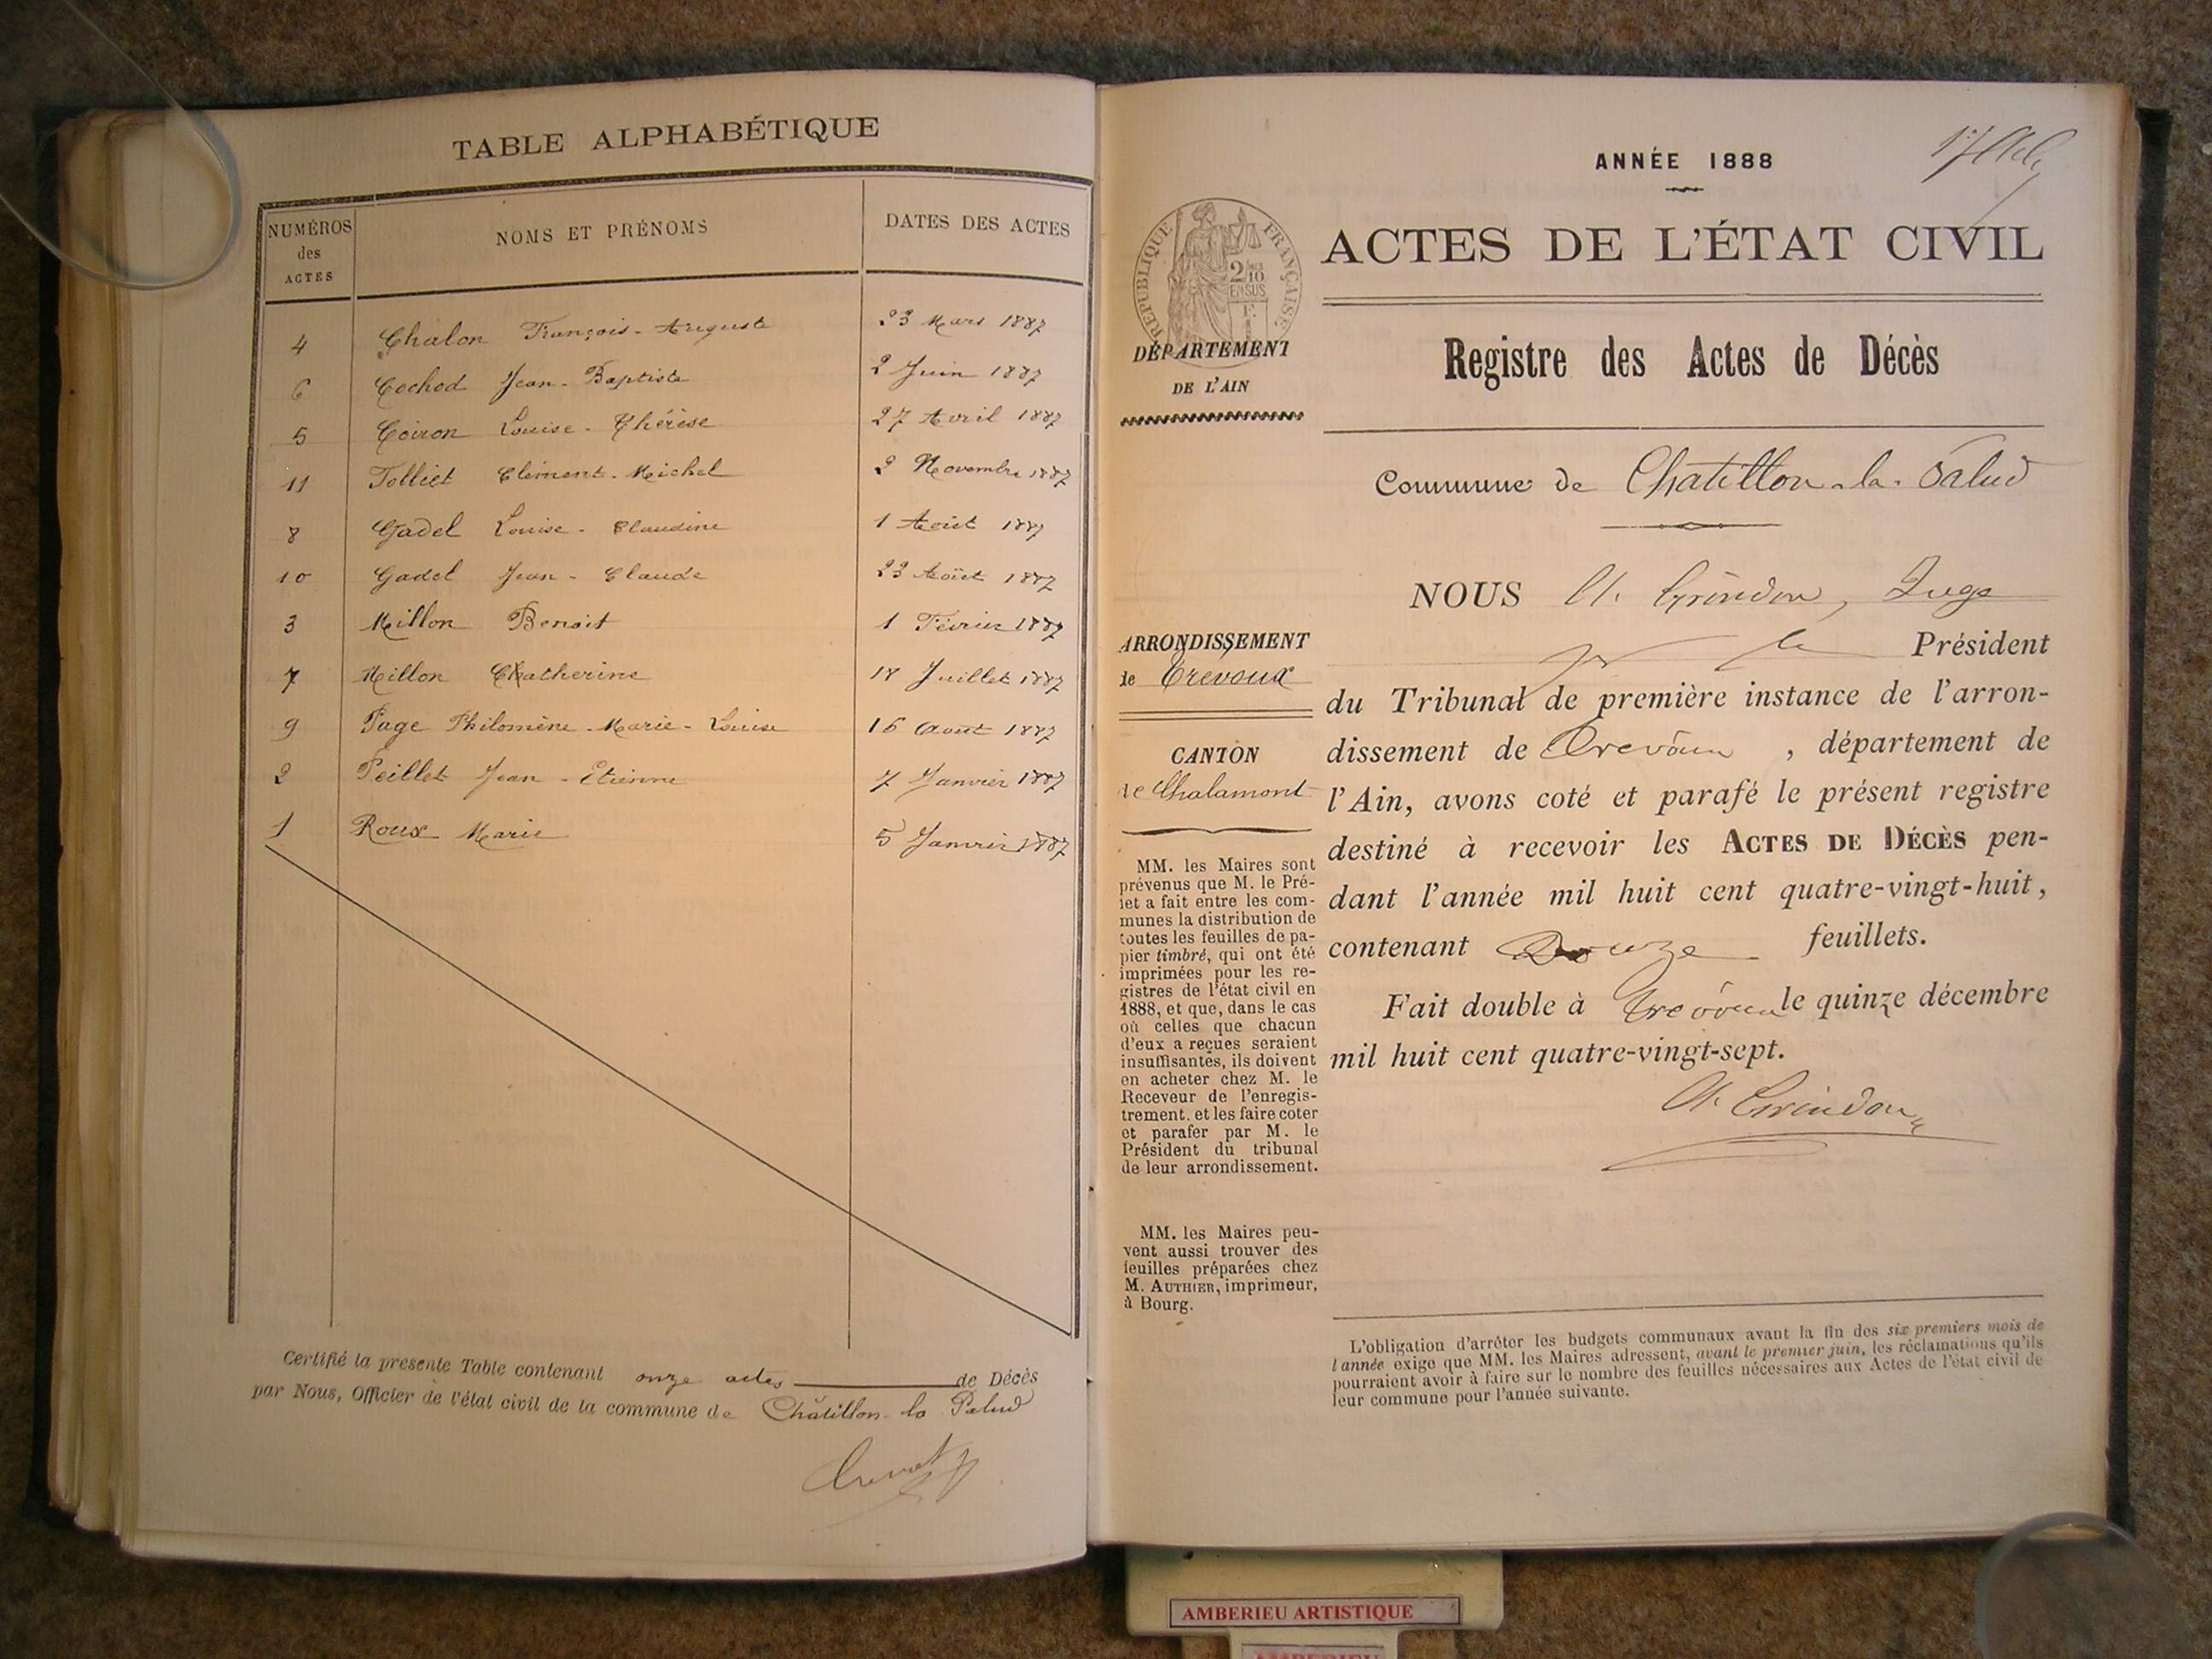 TABLE ALPHABÉTIQUE
NUMÉROS des ACTES NOMS ET PRÉNOMS DATES DES ACTES
4 Chalon François-Auguste 23 Mars 1887
6 Cochod Jean-Baptiste 2 Juin 1887
5 Coiron Louise-Thérèse 27 Avril 1887
11 Folliet Clément-Michel 2 Novembre 1887
8 Gadel Louise-Claudine 1 Août 1887
10 Gadel Jean-Claude 23 Août 1887
3 Millon Benoit 1 Février 1887
7 Millon Catherine 18 Juillet 1887
9 Page Philomène-Marie-Louise 16 Août 1887
2 Peillet Jean-Etienne 7 Janvier 1887
1 Roux Marie 5 Janvier 1887
Certifié la présente Table contenant onze actes de Décès
par Nous, Officier de l'état civil de la commune de Châtillon-la Palud
ANNÉE 1888
ACTES DE L'ÉTAT CIVIL
RÉPUBLIQUE FRANÇAISE
2/10 EN SUS
DÉPARTEMENT
DE L'AIN
Registre des Actes de Décès
Commune de Chatillon-la-Palud
ARRONDISSEMENT
de Trévoux
CANTON
de Chalamont
MM. les Maires sont
prévenus que M. le Pré-
fet a fait entre les com-
munes la distribution de
toutes les feuilles de pa-
pier timbré, qui ont été
imprimées pour les re-
gistres de l'état civil en
1888, et que, dans le cas
où celles que chacun
d'eux a reçues seraient
insuffisantes, ils doivent
en acheter chez M. le
Receveur de l'enregis-
trement, et les faire coter
et parafer par M. le
Président du tribunal
de leur arrondissement.
MM. les Maires peu-
vent aussi trouver des
feuilles préparées chez
M. AUTHIER, imprimeur,
à Bourg.
NOUS Ch. Grindon, Juge
pr le Président
du Tribunal de première instance de l'arron-
dissement de Trévoux, département de
l'Ain, avons coté et parafé le présent registre
destiné à recevoir les ACTES DE DÉCÈS pen-
dant l'année mil huit cent quatre-vingt-huit,
contenant Douze feuillets.
Fait double à Trévoux le quinze décembre
mil huit cent quatre-vingt-sept.
Ch. Grindon
L'obligation d'arrêter les budgets communaux avant la fin des six premiers mois de
l'année exige que MM. les Maires adressent, avant le premier juin, les réclamations qu'ils
pourraient avoir à faire sur le nombre des feuilles nécessaires aux Actes de l'état civil de
leur commune pour l'année suivante.
AMBERIEU ARTISTIQUE
AMBERIEU